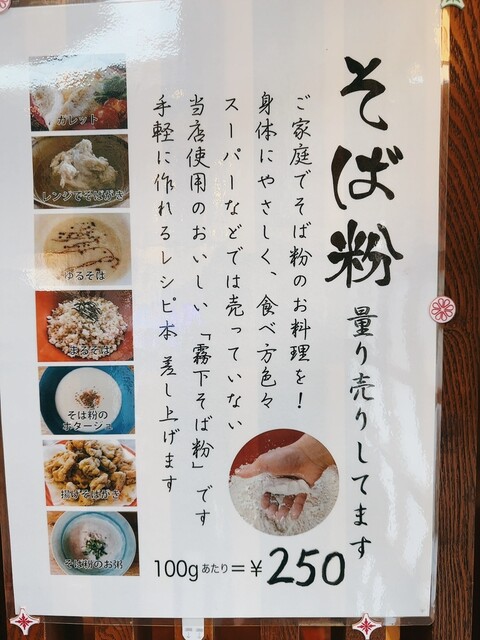 そば粉 量り売りしてます
ご家庭でそば粉のお料理を!
身体にやさしく、食べ方色々
スーパーなどでは売っていない
当店使用のおいしい「霧下そば粉」です
手軽に作れるレシピ本 差し上げます
100gあたり=¥250
ガレット
レンジでそばがき
ゆるそば
まるそば
そば粉の
ポタージュ
揚げそばがき
そば粉のお粥